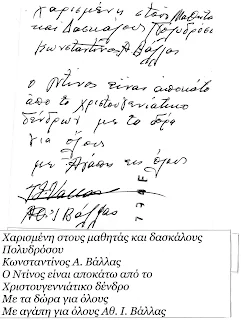 Χαρισμένη στους Μαθητάς
και Δασκάλους Πολυδρόσου
Κωνσταντίνος Α. Βάλλας
Ο Ντίνος είναι αποκάτο
απο το χριστουγενιάτικο
δένδρων με τα δόρα
για όλους
με Αγάπη για όλους
Αθ. Ι. Βάλλας
Χαρισμένη στους μαθητάς και δασκάλους
Πολυδρόσου
Κωνσταντίνος Α. Βάλλας
Ο Ντίνος είναι αποκάτω από το
Χριστουγεννιάτικο δένδρο
Με τα δώρα για όλους
Με αγάπη για όλους Αθ. Ι. Βάλλας